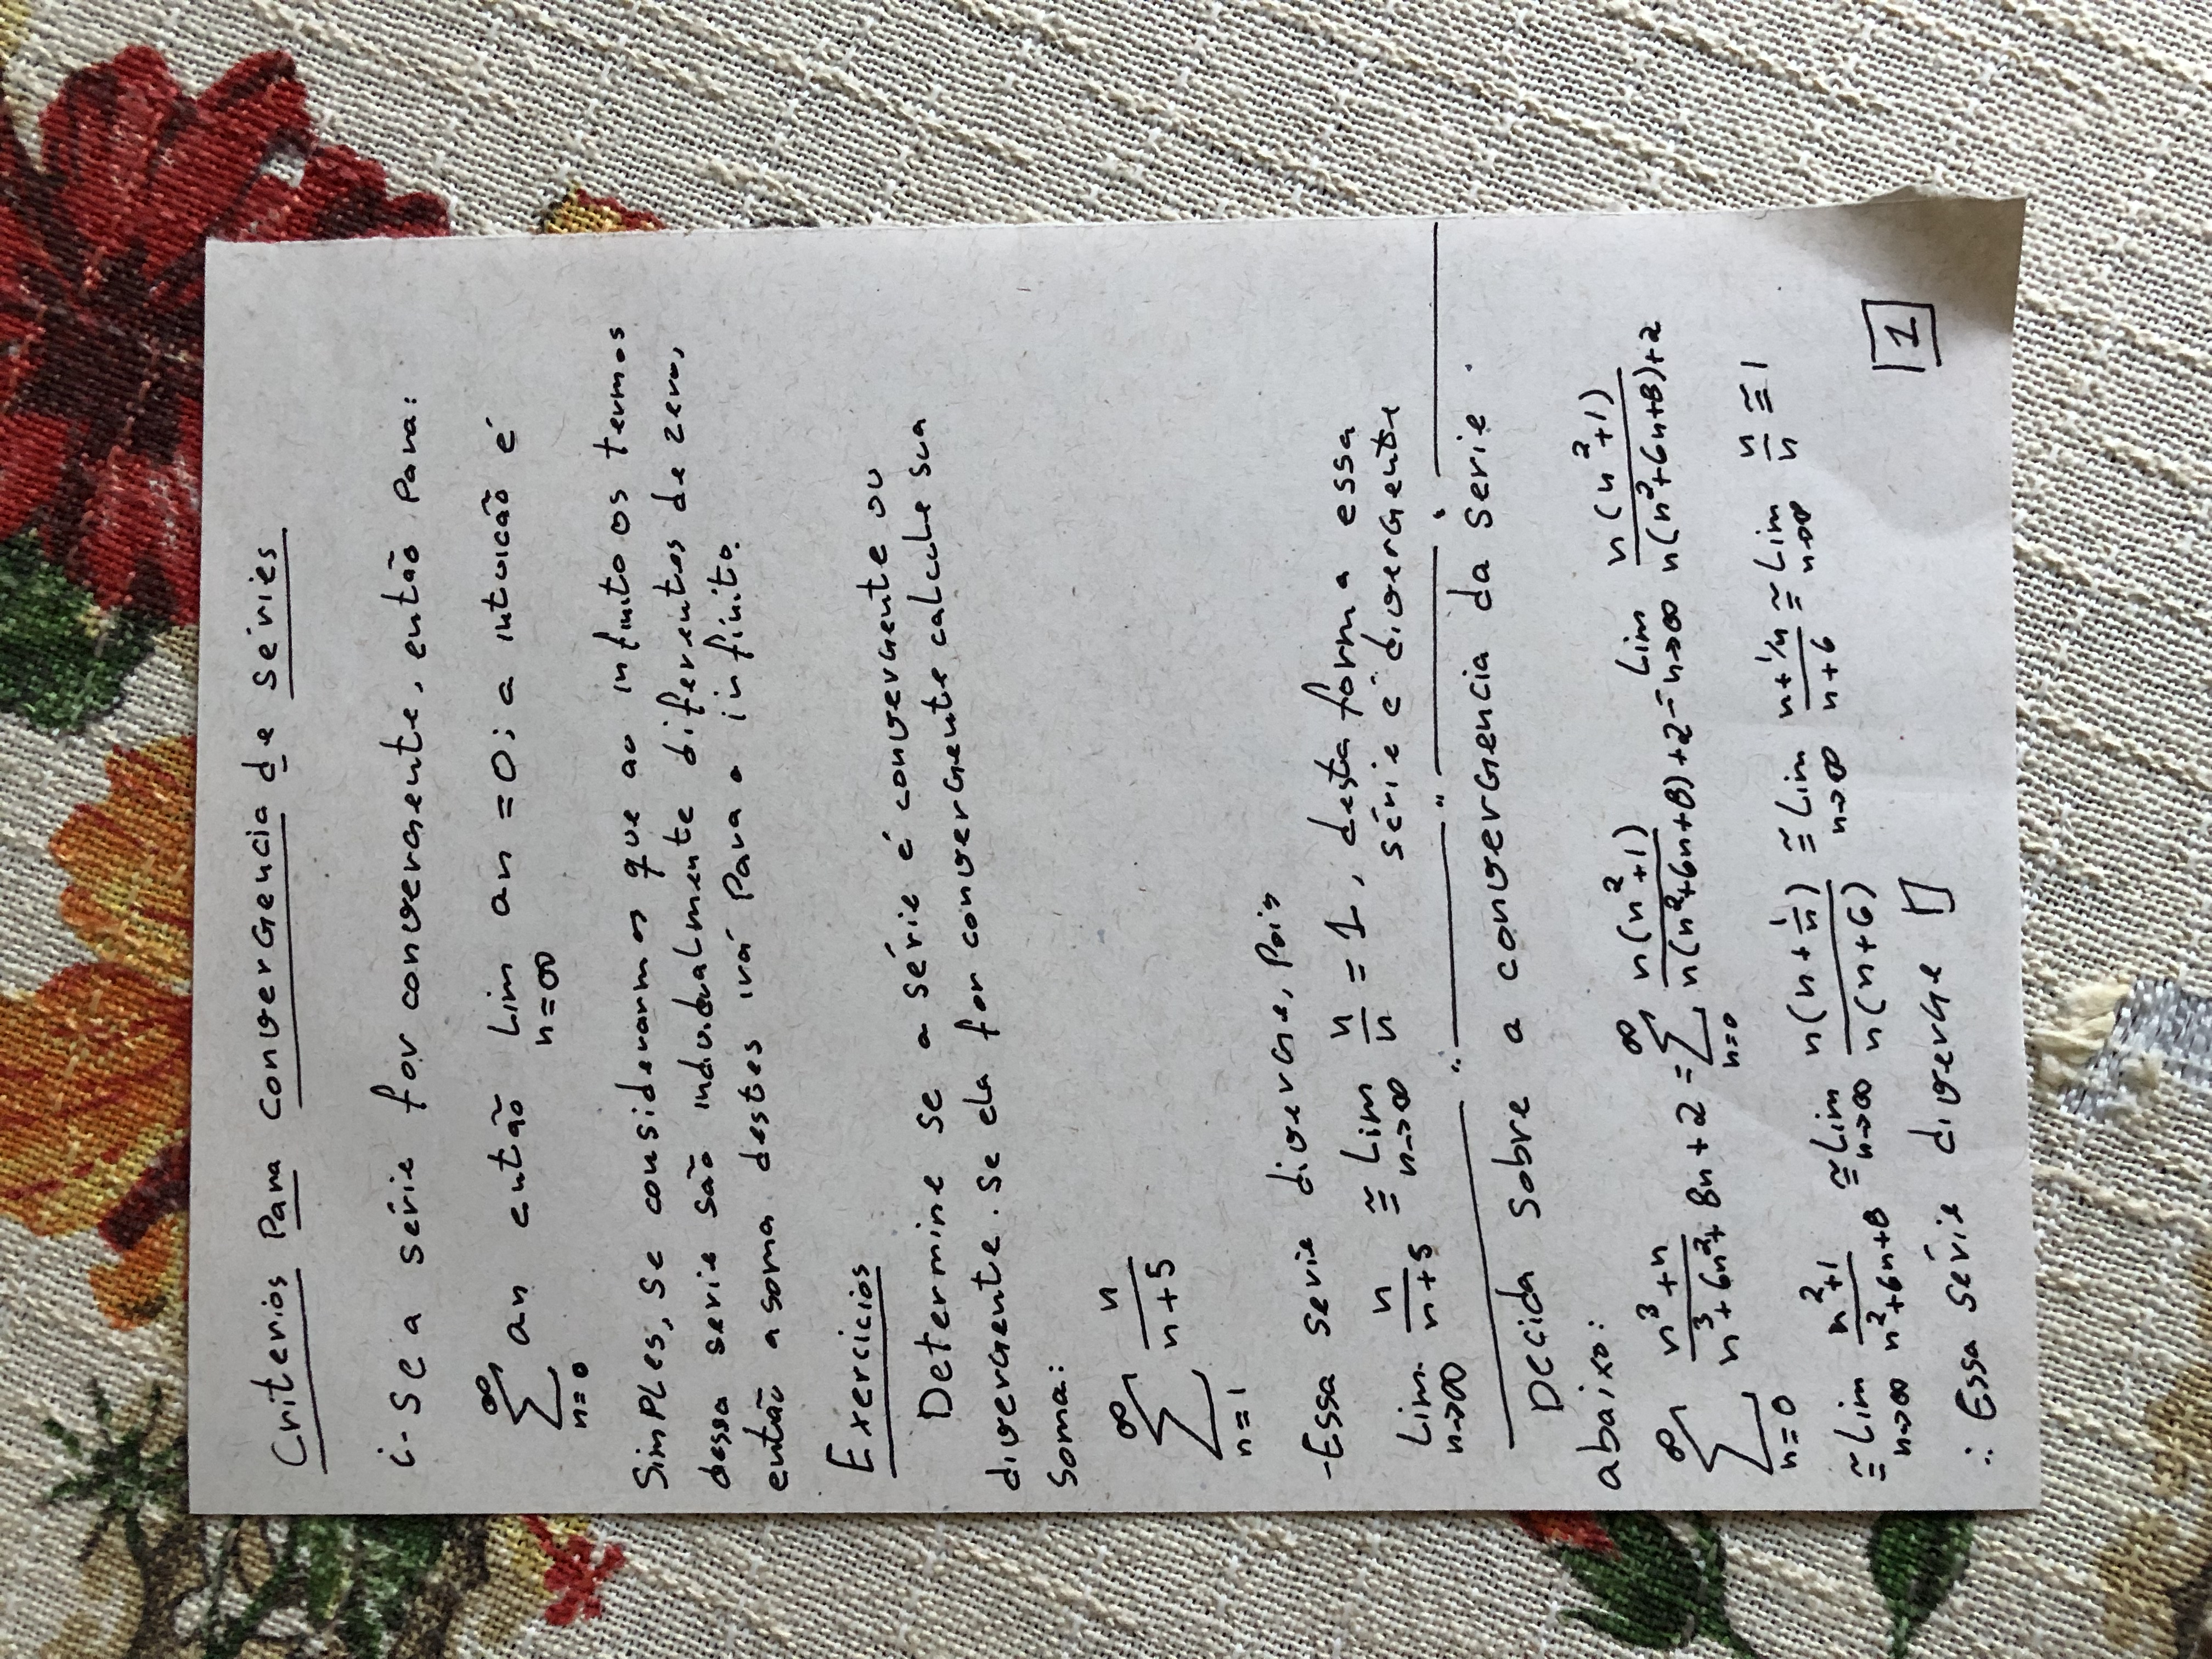 Criterios Para convergencia de séries
i- Se a série for convergente, então Para:
∞∑n=0 an então Lim n=∞ an = 0; a intuicão é
Simples, se considerarmos que ao infinito os termos
dessa serie são individualmente diferentes de zero,
então a soma destes irá Para o infinito.
Exercicios
Determine se a série é convergente ou
divergente. se ela for convergente calcule sua
soma:
∞∑n=1 n/(n+5)
-Essa serie diverge, Pois
Lim n→∞ n/(n+5) ≅ Lim n→∞ n/n = 1, desta forma essa
série é divergente
Decida sobre a convergencia da serie
abaixo:
∞∑n=0 (n³+n)/(n³+6n²+8n+2) = ∞∑n=0 n(n²+1)/(n(n²+6n+8)+2) = Lim n→∞ n(n²+1)/(n(n²+6n+8)+2)
≅ Lim n→∞ (n²+1)/(n²+6n+8) ≅ Lim n→∞ n(n+1/n)/(n(n+6)) ≅ Lim n→∞ (n+1/n)/(n+6) ≅ Lim n→∞ n/n ≅ 1
∴ Essa série diverge □
1